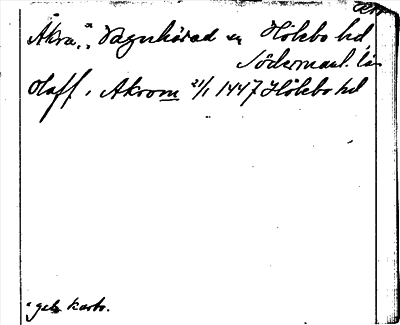 Åkra, ᵃ Vagnhärad sn Hölebo hd
Södermanl. län
Olaff i Akrom 21/1 1447 Hölebo hd
ᵃ geb karta.